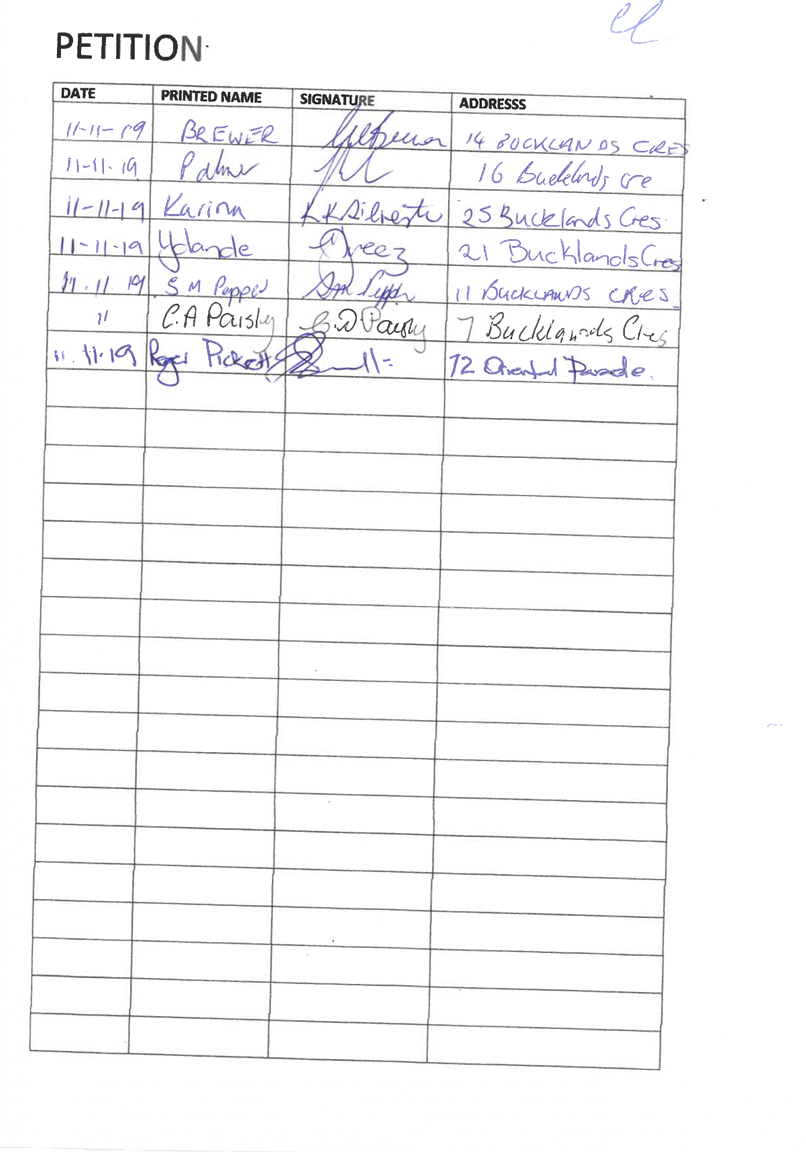 PETITION
DATE PRINTED NAME SIGNATURE ADDRESSS
11-11-19 BREWER 14 BUCKLANDS CRES
11-11-19 Palmer 16 Bucklands cre
11-11-19 Karina 25 Bucklands Cres
11-11-19 Yolande 21 Bucklands Cres
11.11.19 S M Pepper 11 BUCKLANDS CRES.
11 C.A Paisly 7 Bucklands Cres
11.11.19 Roger Pickett 72 Oriental Parade.